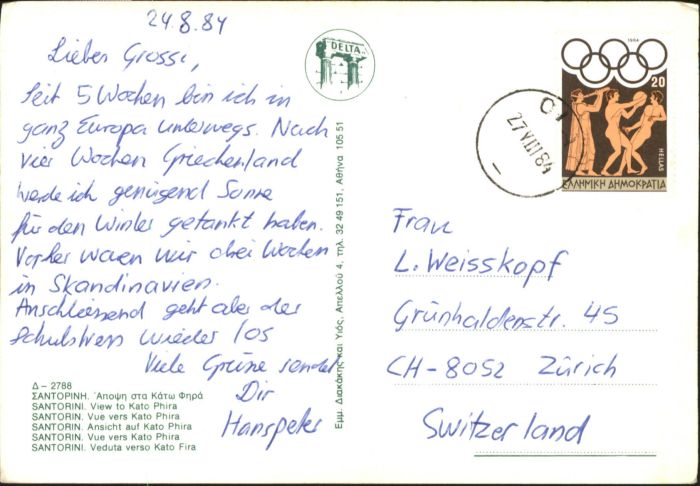 24.8.84
Lieber Grossi,
Seit 5 Wochen bin ich in
ganz Europa unterwegs. Nach
vier Wochen Griechenland
werde ich genügend Sonne
für den Winter getankt haben.
Vorher waren wir drei Wochen
in Skandinavien.
Anschliessend geht aber der
Schulstress wieder los
Viele Grüsse sendet
Dir
Hanspeter
Δ – 2788
ΣΑΝΤΟΡΙΝΗ. Άποψη στα Κάτω Φηρά
SANTORINI. View to Kato Phira
SANTORIN. Vue vers Kato Phira
SANTORIN. Ansicht auf Kato Phira
SANTORIN. Vue vers Kato Phira
SANTORINI. Veduta verso Kato Fira
DELTA
Εμμ. Διακάκης και Υιός, Απελλού 4, τηλ. 32 49 151, Αθήνα 105 51
27 VIII 84
1984
20
HELLAS
ΕΛΛΗΝΙΚΗ ΔΗΜΟΚΡΑΤΙΑ
Frau
L. Weisskopf
Grünhaldenstr. 45
CH-8052 Zürich
Switzerland